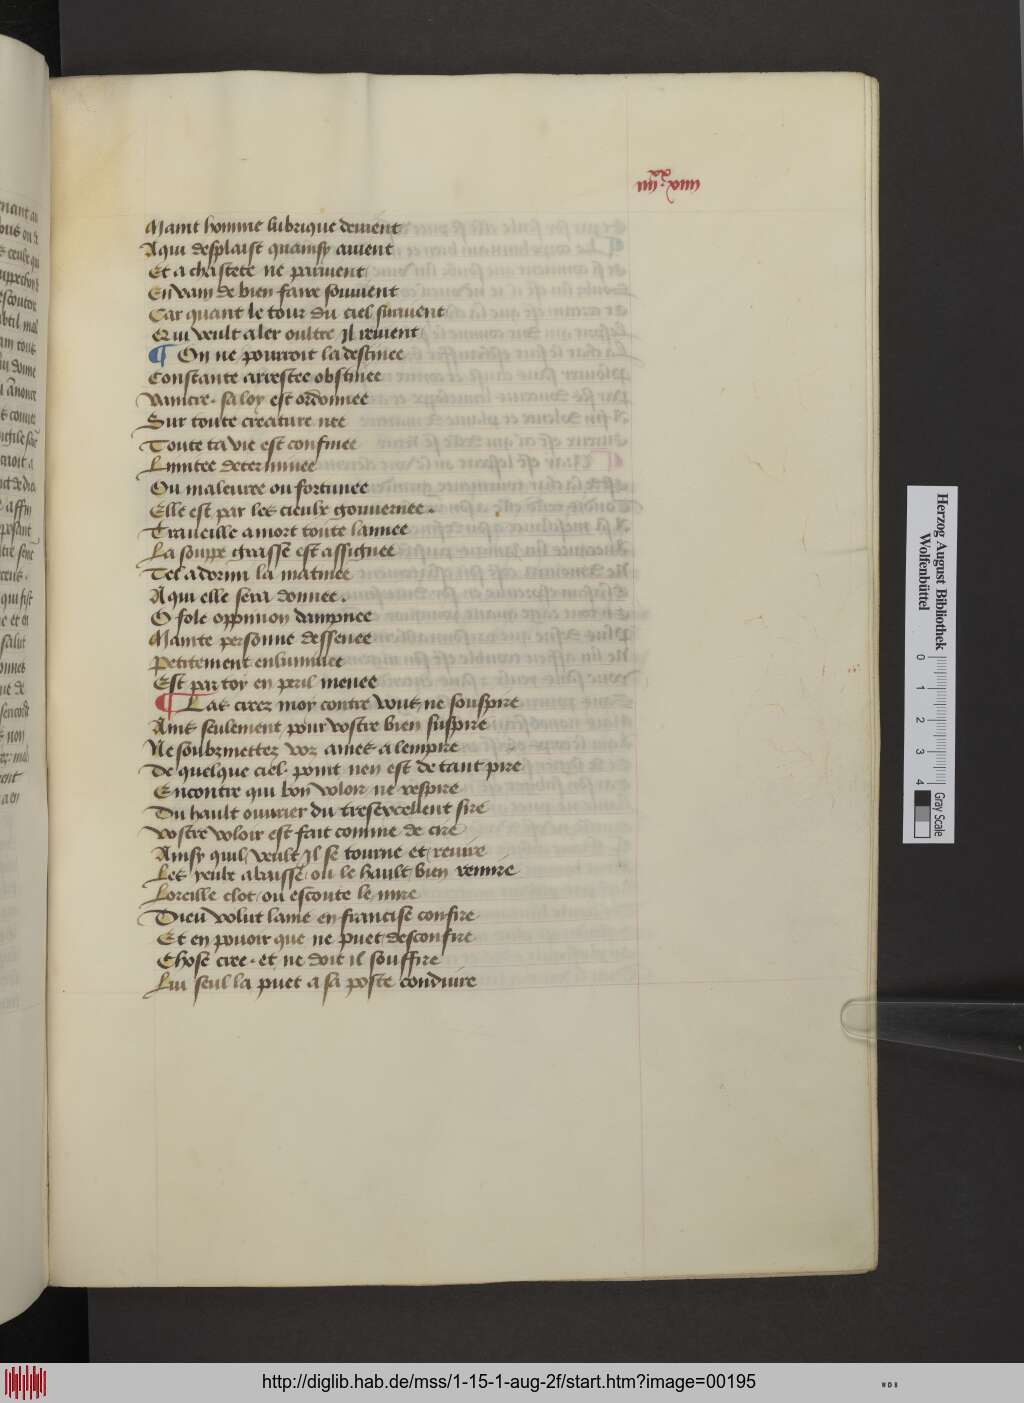 iiii xx. xiiii
Maint homme lubrique deuient
A qui desplaist quainsy auient
Et a chastete ne paruient
En vain de bien faire souuient
Car quant le tour du ciel suruient
Qui veult aler oultre Il reuient
¶ On ne pourroit la destinee
Constante arrestee obstinee
Vaincre. sa loy est ordonnee
Sur toute creature nee
Toute ta vie est confinee
Limitee determinee
Ou maleuree ou fortunee
Elle est par les cieulx gouuernee.
Traueille a mort toute lannee
La souppe grasse est assignee
Tel a dormi la matinee
A qui elle sera donnee.
O fole oppinion dampnee
Mainte personne dessenee
Petitement enluminee
Est par toy en peril menee
¶ Las cirez moy contre vous ne souspire
Ains seulement pour vostre bien suspire
Ne soubzmettez voz ames a lempire
De quelque ciel. point nen est de tant pire
Encontre qui bon voloir ne respire
Du hault ouurier du tresexcellent sire
Vostre voloir est fait comme de cire
Ainsy quil veult Il se tourne et reuire
Les yeulx abaisse ou le hault bien remire
Loreille clot ou escoute le mire
Dieu volut lame en francise confire
Et en pouoir que ne puet desconfire
Chose cree. et ne doit il souffire
Lui seul la puet a sa poste conduire
Herzog August Bibliothek
Wolfenbüttel
0 1 2 3 4
Gray Scale
http://diglib.hab.de/mss/1-15-1-aug-2f/start.htm?image=00195